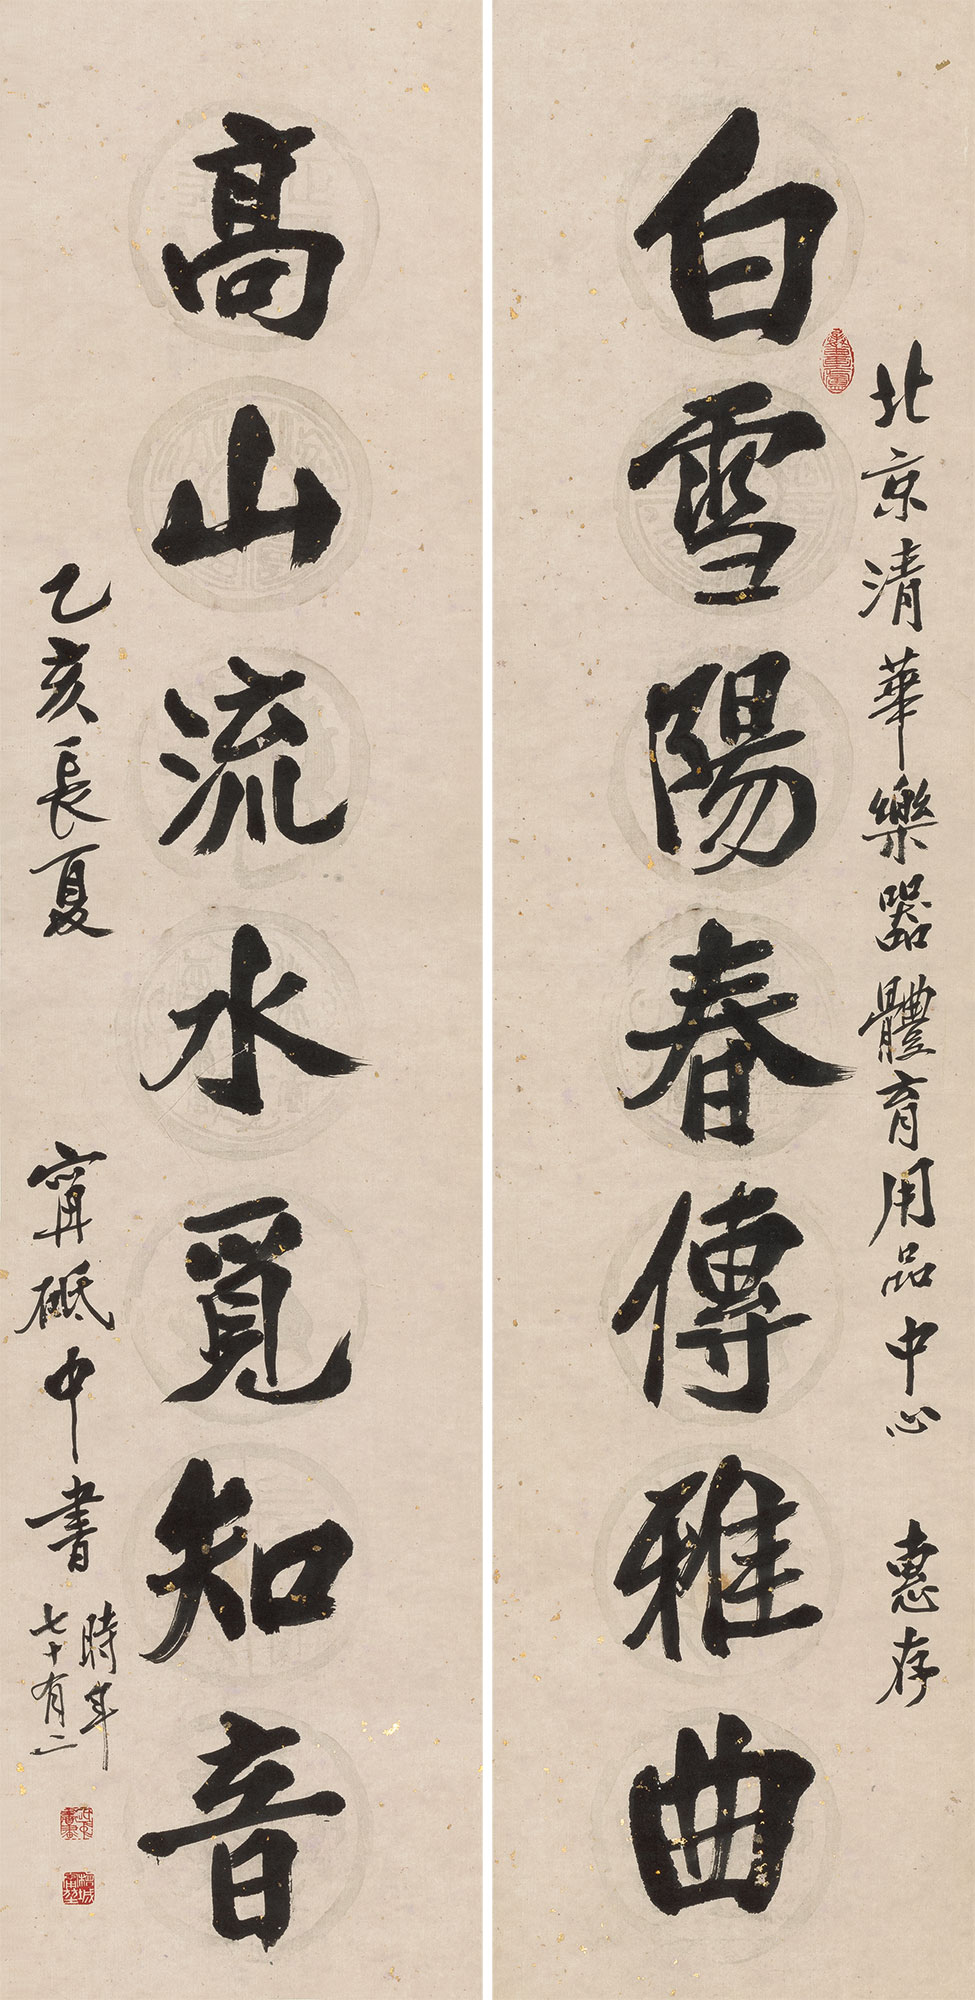 北京清華樂器體育用品中心 惠存
白雪陽春傳雅曲
高山流水覓知音
乙亥長夏 甯砥中書
時年
七十有二